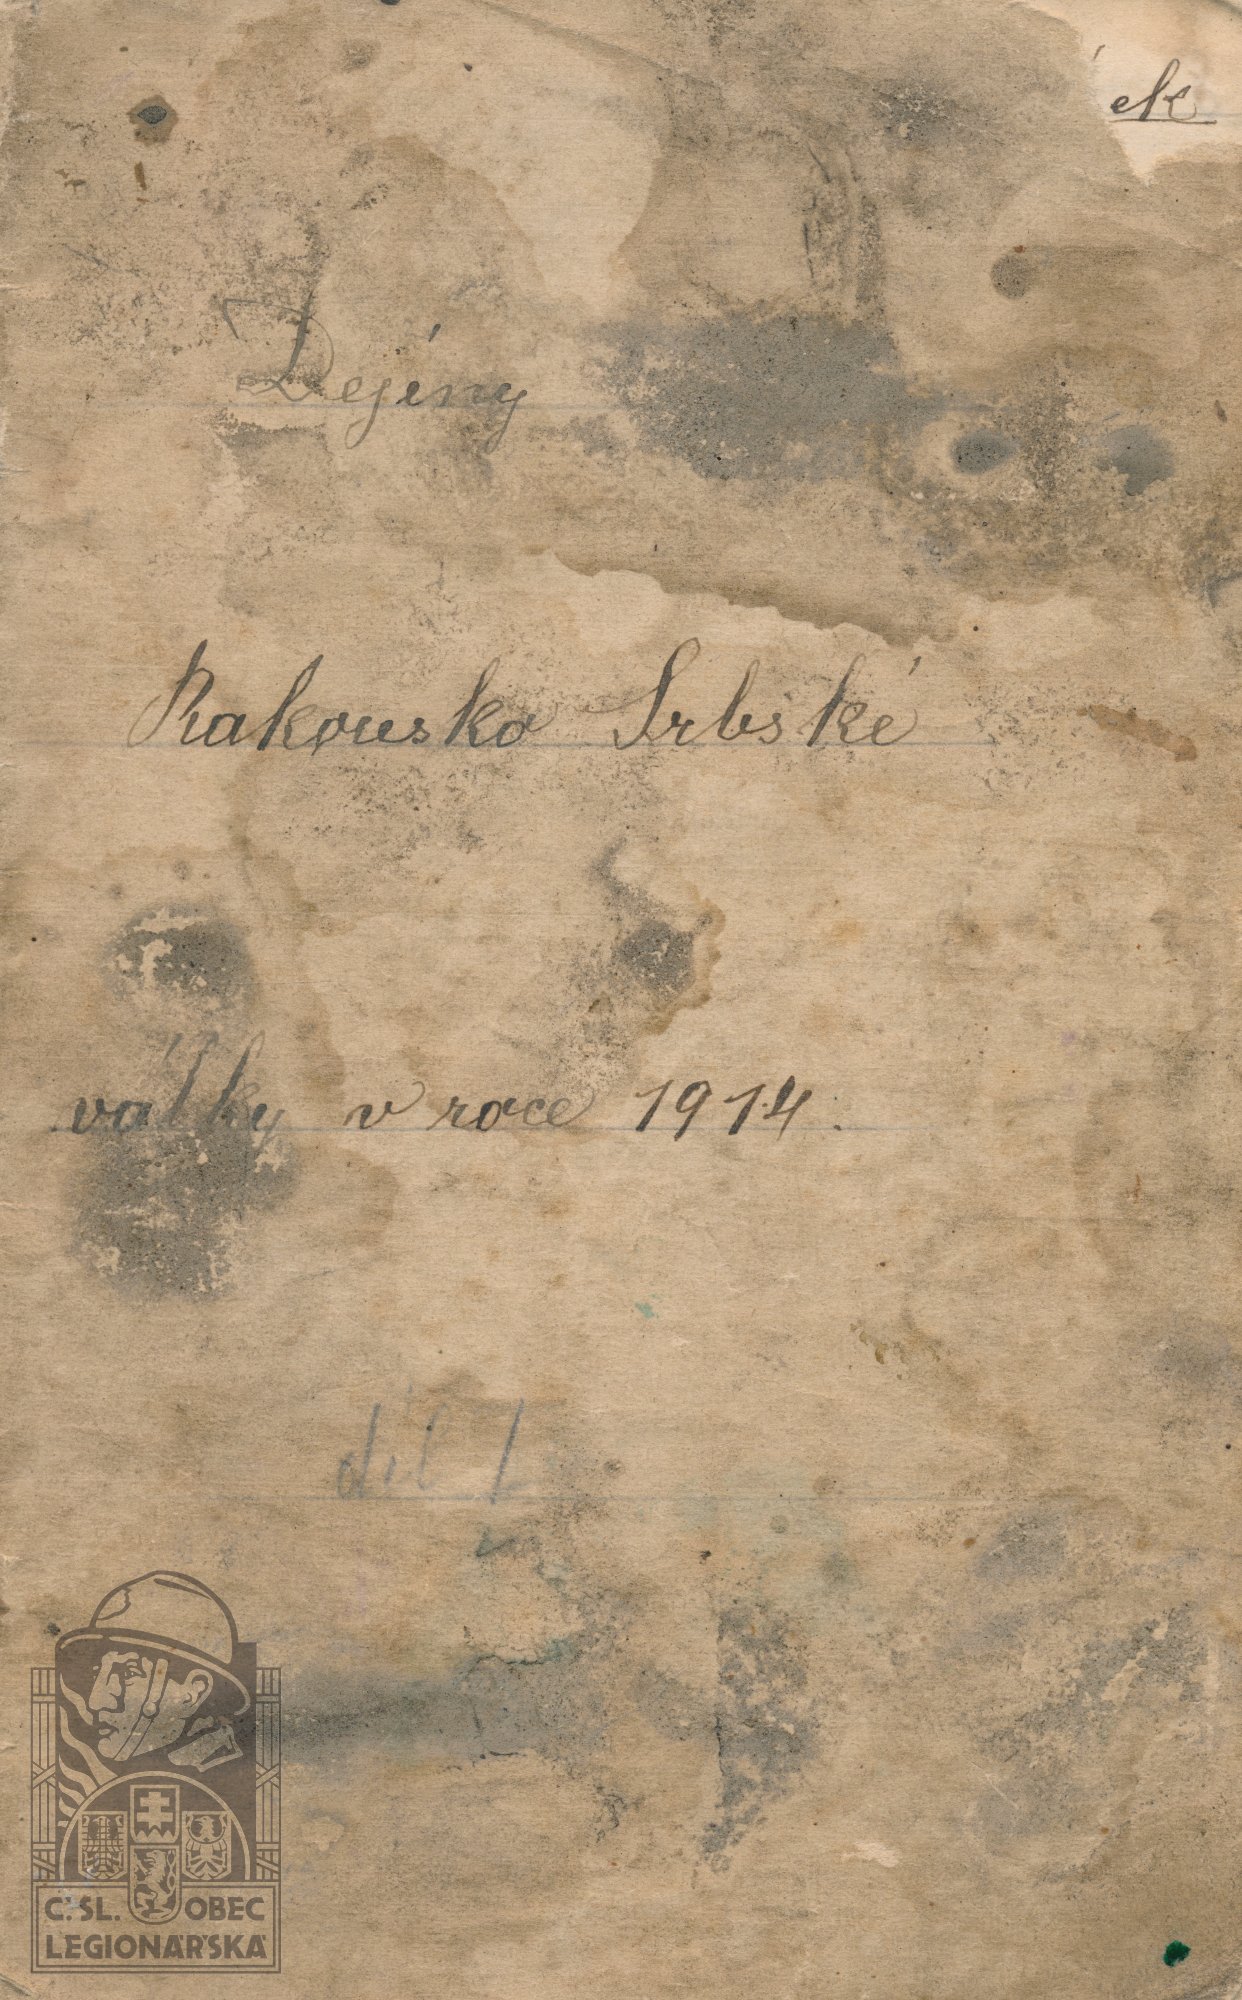 ek
Dejény
Rakousko Srbské
války v roce 1914.
díl I
Č.SL. OBEC
LEGIONÁŘSKÁ